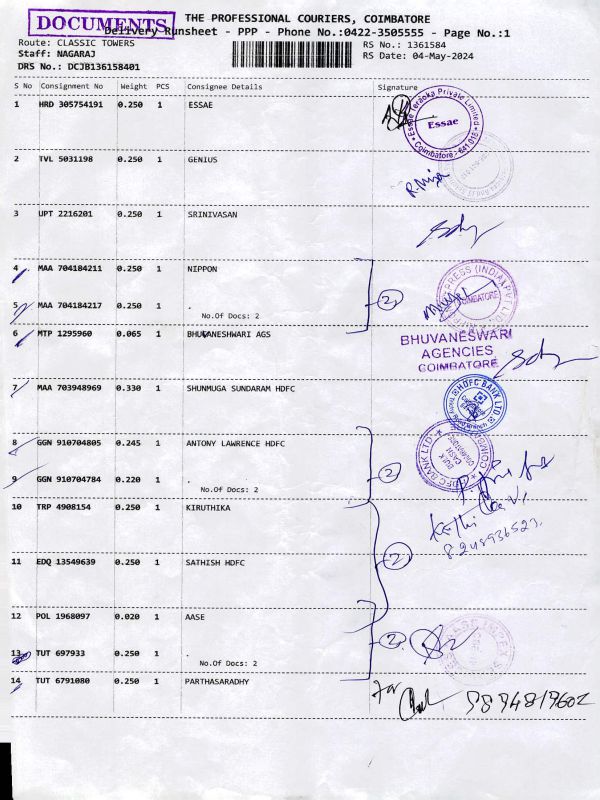 DOCUMENTS
THE PROFESSIONAL COURIERS, COIMBATORE
Delivery Runsheet - PPP - Phone No.:0422-3505555 - Page No.:1
Route: CLASSIC TOWERS
RS No.: 1361584
Staff: NAGARAJ
RS Date: 04-May-2024
DRS No.: DCJB136158401
S No Consignment No Weight PCS Consignee Details Signature
1 HRD 305754191 0.250 1 ESSAE
Essae Teraoka Private Limited
Essae
Coimbatore - 641 018
2 TVL 5031198 0.250 1 GENIUS
3 UPT 2216201 0.250 1 SRINIVASAN
4 MAA 704184211 0.250 1 NIPPON
5 MAA 704184217 0.250 1 .
No.Of Docs: 2
2
EXPRESS (INDIA) PVT. LTD.
COIMBATORE
6 MTP 1295960 0.065 1 BHUVANESHWARI AGS
BHUVANESWARI
AGENCIES
COIMBATORE
7 MAA 703948969 0.330 1 SHUNMUGA SUNDARAM HDFC
HDFC BANK LTD
8 GGN 910704805 0.245 1 ANTONY LAWRENCE HDFC
9 GGN 910704784 0.220 1 .
No.Of Docs: 2
2
HDFC BANK LTD
10 TRP 4908154 0.250 1 KIRUTHIKA
8248936523
11 EDQ 13549639 0.250 1 SATHISH HDFC
2
12 POL 1968097 0.020 1 AASE
13 TUT 697933 0.250 1 .
No.Of Docs: 2
2
14 TUT 6791080 0.250 1 PARTHASARADHY
For
9894819602